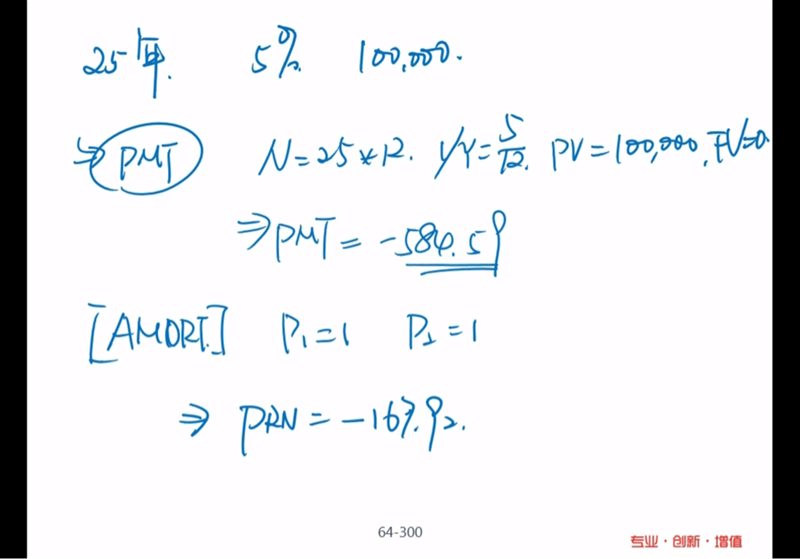 25年. 5% 100,000.
→ PMT N=25*12. I/Y=5/12. PV=100,000, FV=0.
⇒ PMT = -584.59
[AMORT.] P₁=1 P₂=1
⇒ PRN = -167.92.
64-300
专业·创新·增值